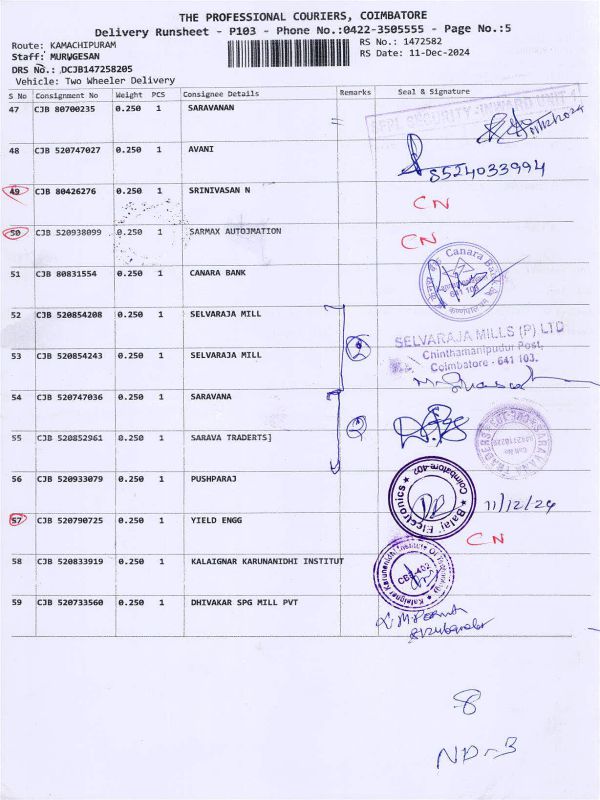 THE PROFESSIONAL COURIERS, COIMBATORE
Delivery Runsheet - P103 - Phone No.:0422-3505555 - Page No.:5
Route: KAMACHIPURAM RS No.: 1472582
Staff: MURUGESAN RS Date: 11-Dec-2024
DRS No.: DCJB147258205
Vehicle: Two Wheeler Delivery
S No Consignment No Weight PCS Consignee Details Remarks Seal & Signature
47 CJB 80700235 0.250 1 SARAVANAN
SECURITY INWARD UNIT 1
11/12/2024
48 CJB 520747027 0.250 1 AVANI
8524033994
49 CJB 80426276 0.250 1 SRINIVASAN N CN
50 CJB 520938099 0.250 1 SARMAX AUTOJMATION CN
51 CJB 80831554 0.250 1 CANARA BANK
Canara Bank
641 103
52 CJB 520854208 0.250 1 SELVARAJA MILL
2
SELVARAJA MILLS (P) LTD
Chinthamanipudur Post,
Coimbatore - 641 103.
53 CJB 520854243 0.250 1 SELVARAJA MILL
54 CJB 520747036 0.250 1 SARAVANA
2
55 CJB 520852961 0.250 1 SARAVA TRADERTS]
SARAVANA TRADERS
56 CJB 520933079 0.250 1 PUSHPARAJ
Balaji Electronics
Coimbatore-402
11/12/24
57 CJB 520790725 0.250 1 YIELD ENGG CN
58 CJB 520833919 0.250 1 KALAIGNAR KARUNANIDHI INSTITUT
Kalaignar Karunanidhi Institute Of Technology
CBE-402
59 CJB 520733560 0.250 1 DHIVAKAR SPG MILL PVT
8
ND-3